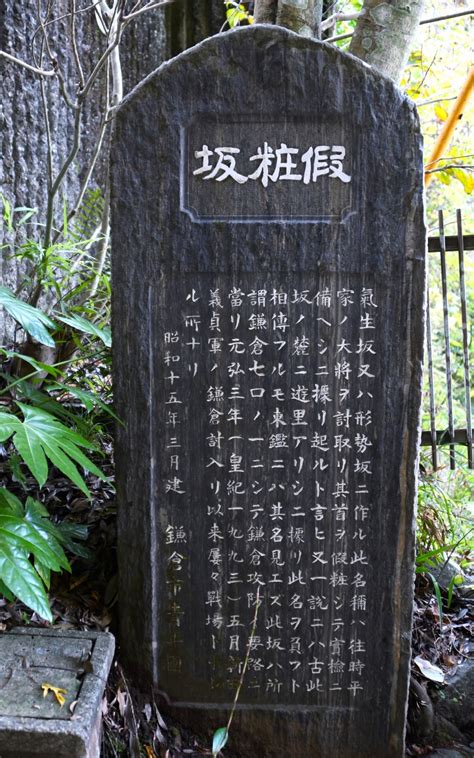 假粧坂
氣生坂又ハ形勢坂ニ作ル此名稱ハ往時平
家ノ大將ヲ討取リ其首ヲ假粧シテ實檢ニ
備ヘシニ據リ起ルト言ヒ又一説ニハ古此
坂ノ麓ニ遊里アリシニ據リ此名ヲ負フト
相傳フルモ東鑑ニハ其名見エズ此坂ハ所
謂鎌倉七口ノ一ニシテ鎌倉攻防ノ要路ニ
當リ元弘三年(皇紀一九九三)五月新
義貞軍ノ鎌倉討入リ以来屢々戰場ト
ル所ナリ
昭和十五年三月建 鎌倉市青年團